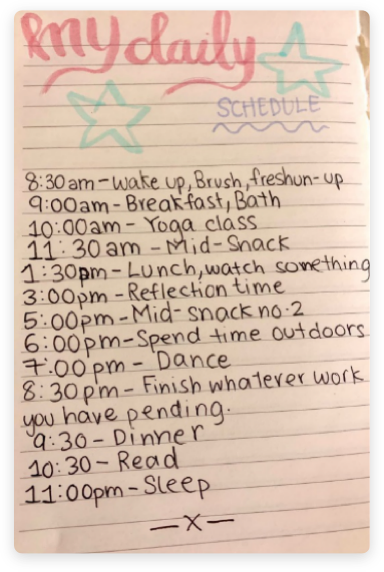 my daily
SCHEDULE
8:30am-wake up, Brush, freshun-up
9:00am-Breakfast, Bath
10:00am - Yoga class
11:30am - Mid-Snack
1:30pm- Lunch, watch something
3:00pm - Reflection time
5:00pm - Mid-snack no.2
6:00pm-Spend time outdoors
7:00pm - Dance
8:30pm - Finish whatever work
you have pending.
9:30 - Dinner
10:30 - Read
11:00pm - Sleep
-x-